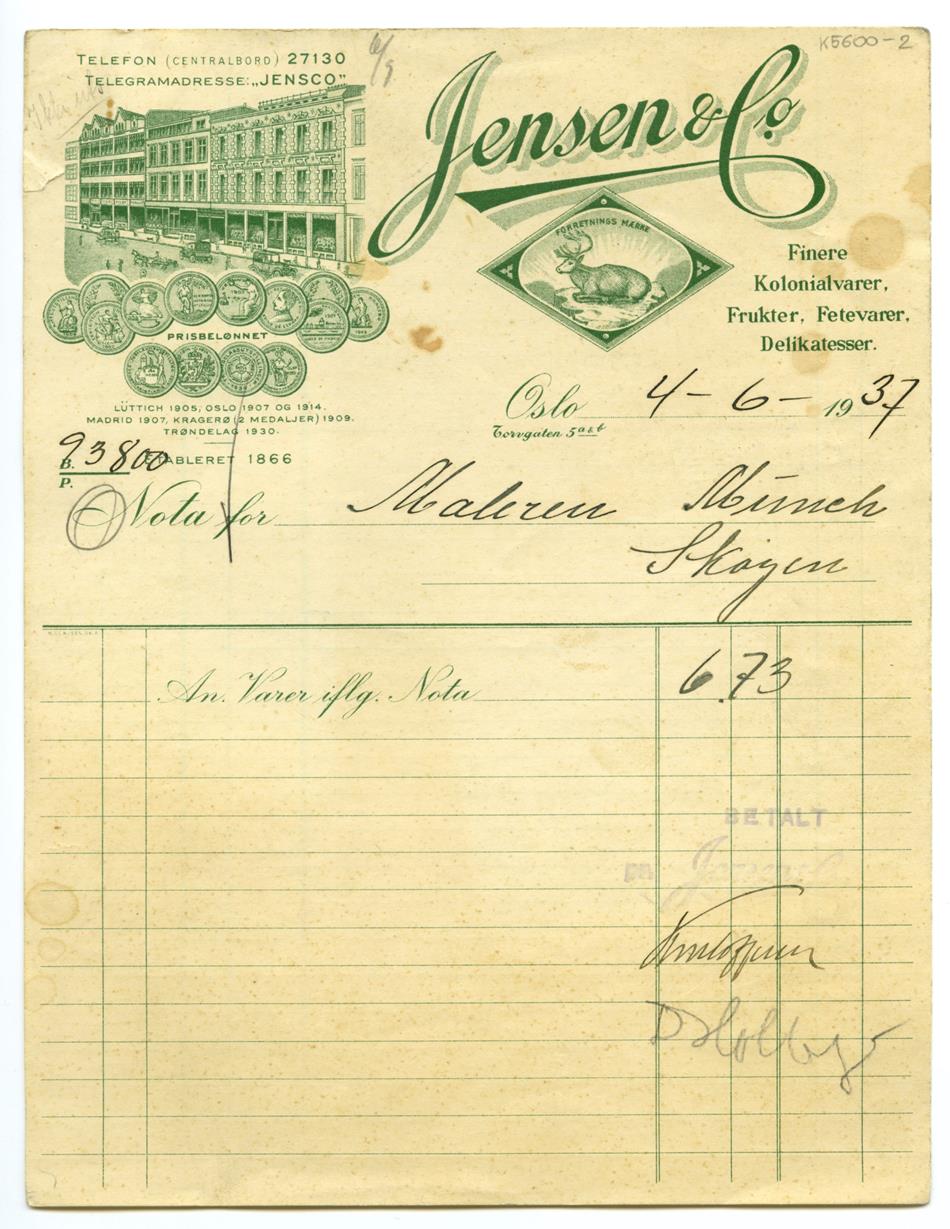 K5600-2
TELEFON (CENTRALBORD) 27130
TELEGRAMADRESSE: „JENSCO"
Jensen & Co
FORRETNINGS MÆRKE
Finere
Kolonialvarer,
Frukter, Fetevarer,
Delikatesser.
PRISBELØNNET
LÜTTICH 1905, OSLO 1907 OG 1914.
MADRID 1907, KRAGERØ (2 MEDALJER) 1909.
TRØNDELAG 1930.
Oslo 4-6- 1937
Torvgaten 5 a & b
93800
B.
P.
ETABLERET 1866
Nota for Maleren Munch
Skøyen
An. Varer iflg. Nota 6.73
BETALT